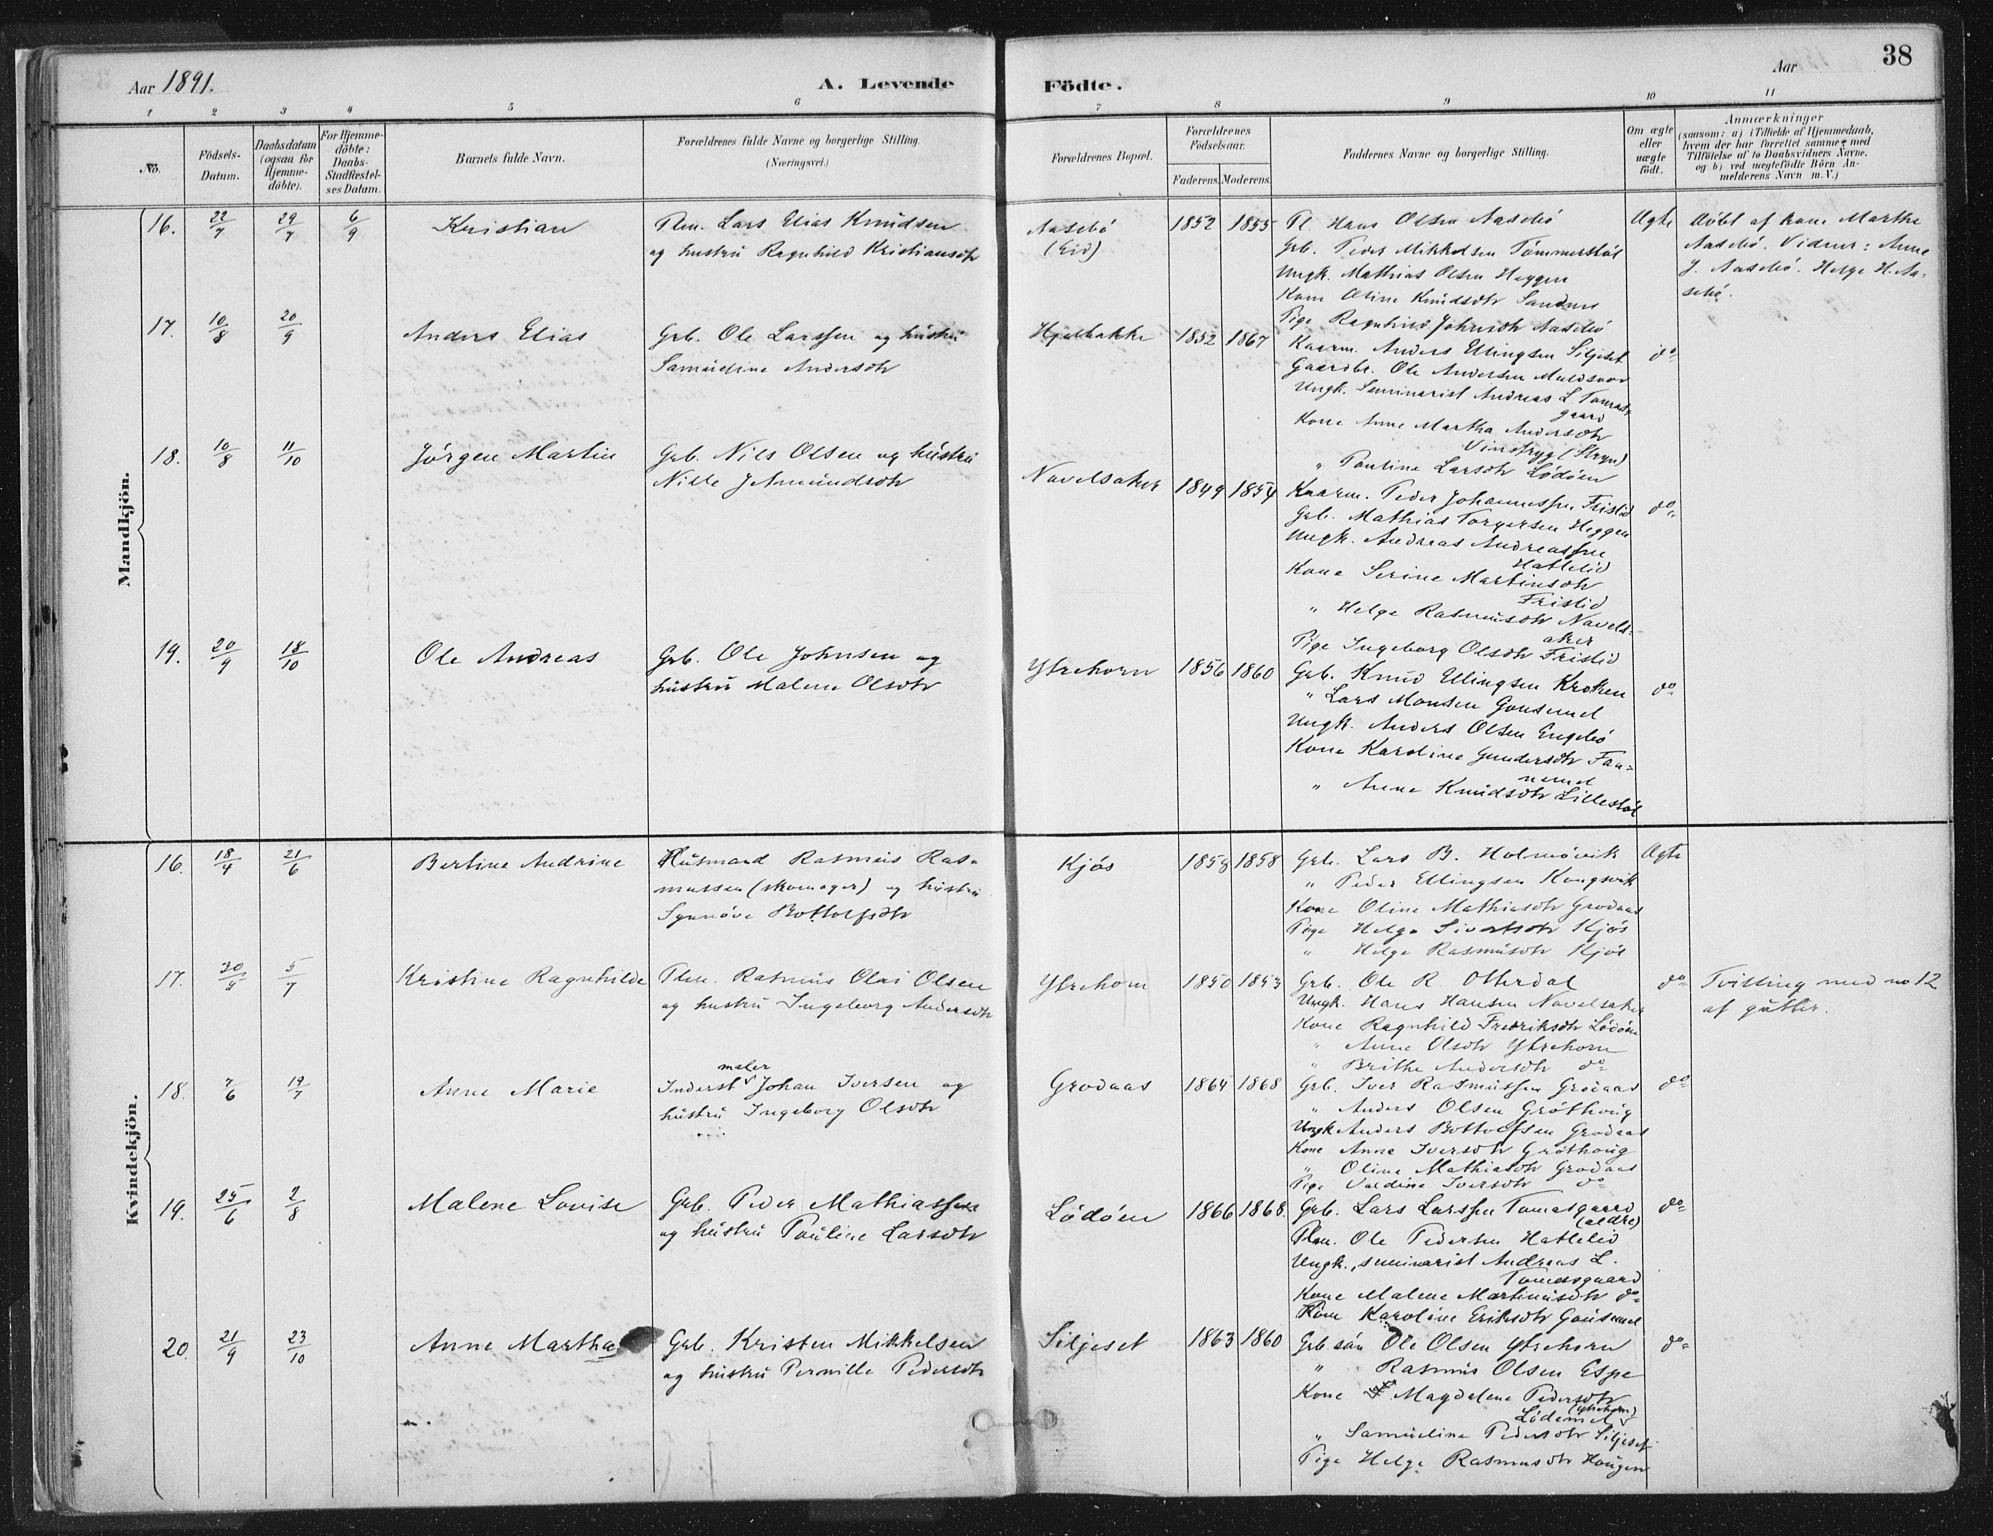 Aar 1891.
A. Levende Födte.
Aar
38
1 2 3 4 5 6 7 8 9 10 11
No.
Födsels-Datum.
Daabsdatum (ogsaa for Hjemme-döbte).
For Hjemme-döbte: Daabs-Stadfæstel-ses Datum.
Barnets fulde Navn.
Forældrenes fulde Navne og borgerlige Stilling. (Næringsvei.)
Forældrenes Bopæl.
Forældrenes Födselsaar.
Faderens. Moderens.
Faddernes Navne og borgerlige Stilling.
Om ægte eller uægte födt.
Anmærkninger
(saasom: a) i Tilfælde af Hjemmedaab, hvem der har forrettet samme med Tilföielse af to Daabsvidners Navne, og b) ved uægtefödte Börn An-melderens Navn m. V.)
Mandkjön.
16. 22/7 29/7 6/9 Kristian
Plm. Lars Elias Knudsen
og hustru Ragnhild Kristiansdtr
Aasebö
(Eid)
1852 1855
Pl. Hans Olsen Aasebö
Grb. Peder Mikkelsen Tömmerstöl
Ungk. Mathias Olsen Heggen
Kone Oline Knudsdtr Sandnes
Pige Ragnhild Johnsdtr Aasebö
Ægte
Döbt af kone Marthe
Aasebö. Vidner: Anne
J. Aasebö. Helge H. Aa-
sebö.
17. 10/8 20/9 Anders Elias
Grb. Ole Larssen og hustru
Samueline Andersdtr
Hjelbakke
1852 1867
Kaarm. Anders Ellingsen Siljeset
Gaardbr. Ole Andersen Muldsvor
Ungk. Seminarist Andreas L Tomas-
gaard
Kone Anne Martha Andersdtr
Vinsrygg (Stryn)
" Pauline Larsdtr Lödöen
do
18. 10/8 11/10 Jörgen Martin
Grb. Nils Olsen og hustru
Nille Jetmundsdtr
Navelsaker
1849 1854
Kaarm. Peder Johannessen Fristid
Grb. Mathias Torgersen Heggen
Ungk. Andreas Andreassen
Hattelid
Kone Serine Martinsdtr
Fristid
" Helge Rasmusdtr Navels-
aker
Pige Ingeborg Olsdtr Fristid
do
19. 20/9 18/10 Ole Andreas
Grb. Ole Johnsen og
hustru Malene Olsdtr
Ytrehorn
1856 1860
Grb. Knud Ellingsen Kroken
" Lars Monsen Gausemel
Ungk. Anders Olsen Engebö
Kone Karoline Gundersdtr Fan-
nemel
" Anne Knudsdtr Lillestöl
do
Kvindekjön.
16. 18/4 21/6 Bertine Andrine
Husmand Rasmus Ras-
mussen (skomager) og hustru
Synnöve Bottolfsdtr
Kjös
1858 1858
Grb. Lars B. Holmövik
" Peder Ellingsen Kongsvik
Kone Oline Mathiasdtr Grodaas
Pige Helga Sivertsdtr Kjös
" Helge Rasmusdtr Kjös
Ægte
17. 5/7 Kristine Ragnhilde
Plm. Rasmus Olai Olsen
og hustru Ingeborg Andersdtr
Ytrehorn
1850 1853
Grb. Ole R. Otterdal
Ungk. Hans Hansen Navelsaker
Kone Ragnhild Fredriksdtr Lödöen
" Anne Olsdtr Ytrehorn
" Brithe Andersdtr do
do
Tvilling med no 12
af gutter.
18. 7/6 19/7 Anne Marie
maler
Inderst Johan Iversen og
hustru Ingeborg Olsdtr
Grodaas
1864 1868
Grb. Iver Rasmussen Grodaas
" Anders Olsen Gröthoug
Ungk Anders Bottolfsen Grodaas
Kone Anne Iversdtr Gröthoug
" Oline Mathiasdtr Grodaas
Pige Valdine Iversdtr do
do
19. 25/6 2/8 Malene Lovise
Grb. Peder Mathiassen
og hustru Pauline Larsdtr
Lödöen
1866 1868.
Grb. Lars Larssen Tomasgaard
(ældre)
Plm. Ole Pedersen Hattelid
Ungk., seminarist Andreas L.
Tomasgaard
Kone Malene Martinusdtr do
Kone Karoline Eriksdtr Gausemel
do
20. 21/9 23/10 Anne Martha
Grb. Kristen Mikkelsen
og hustru Pernille Pedersdtr
Siljeset
1863 1860
Grb. sön Ole Olsen Ytrehorn
" Rasmus Olsen Espe
Kone Magdalene Pedersdtr
(Ytrehorn)
Lödemel
" Samueline Pedersdtr Siljeset
Pige Helge Rasmusdtr Haugen
do